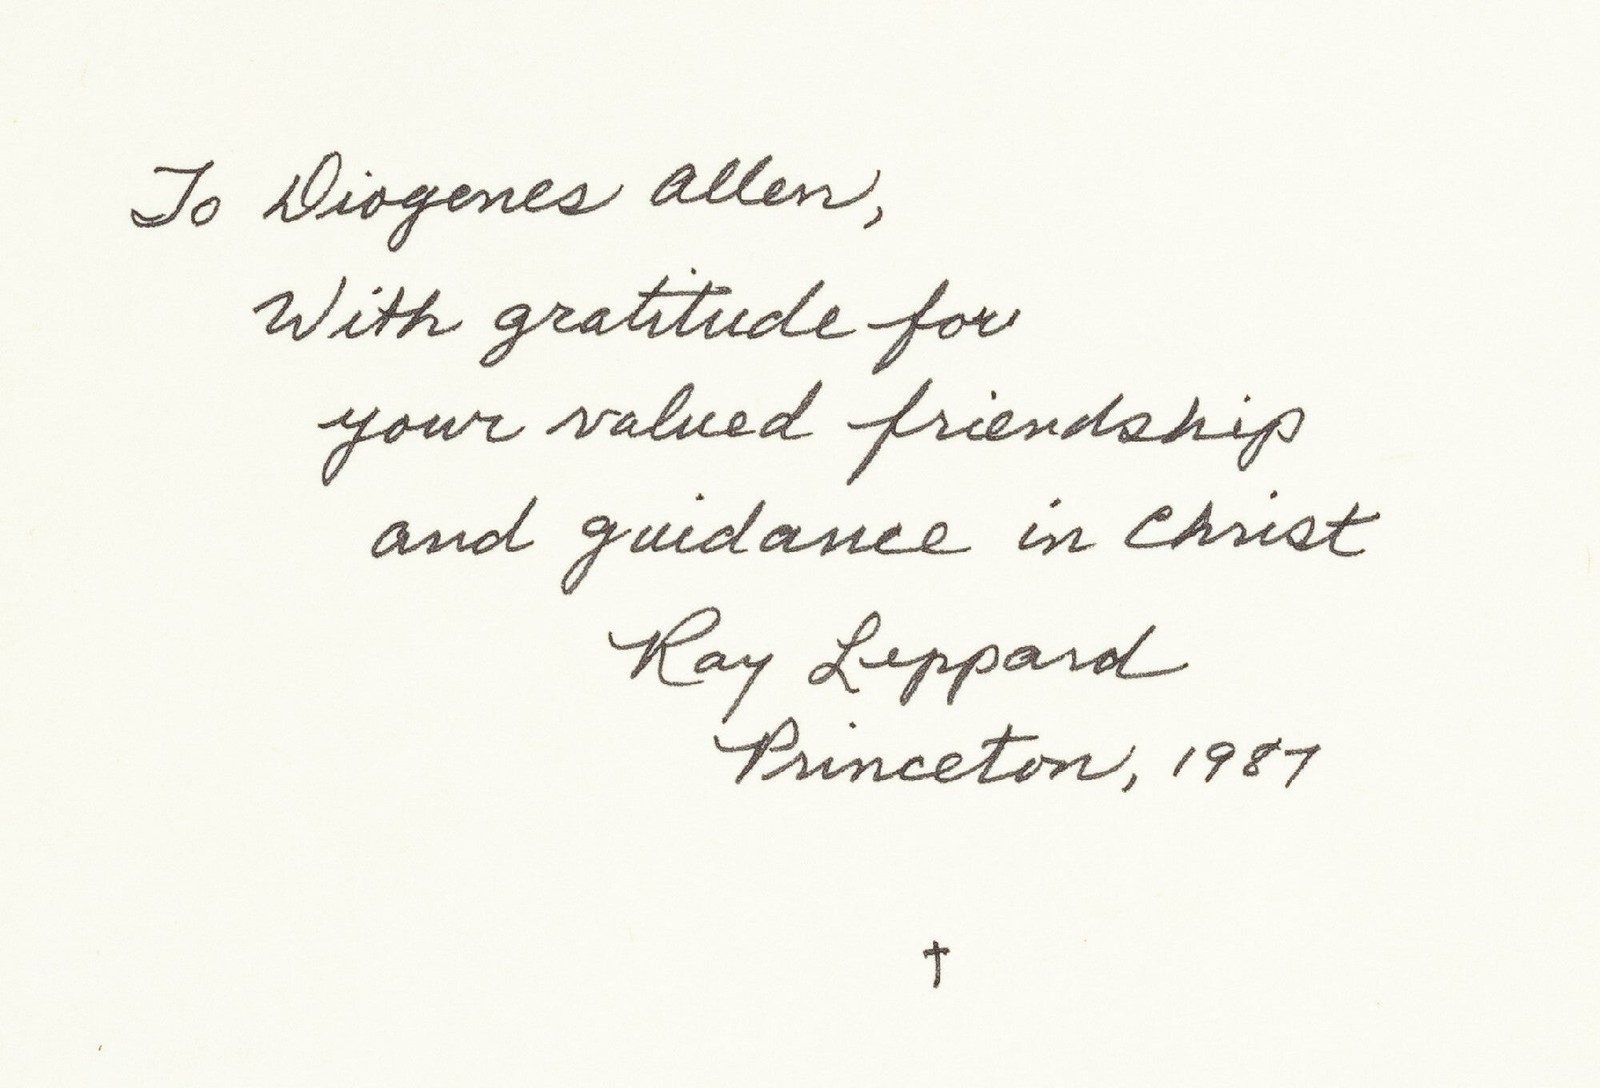 To Diogenes Allen,
With gratitude for
your valued friendship
and guidance in Christ
Ray Leppard
Princeton, 1987
†